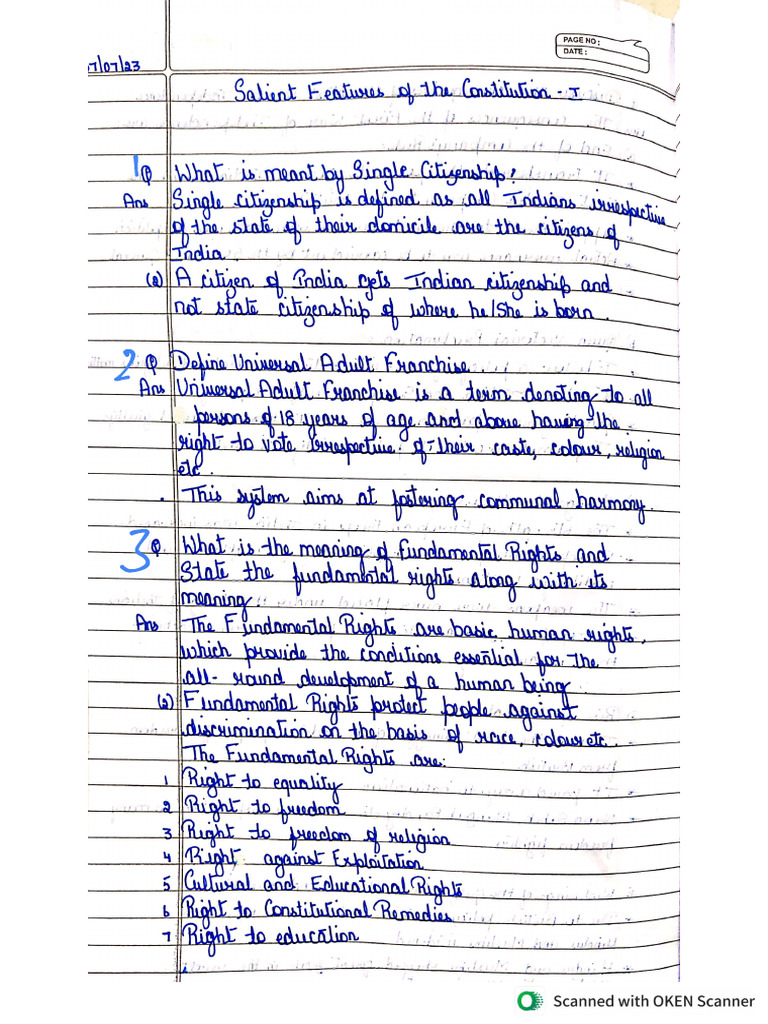 PAGE NO :
DATE :
07/07/23
Salient Features of the Constitution - I
1 Q What is meant by Single Citizenship?
Ans Single citizenship is defined as all Indians irrespective
of the state of their domicile are the citizens of
India.
(2) A citizen of India gets Indian citizenship and
not state citizenship of where he/she is born.
2 Q Define Universal Adult Franchise.
Ans Universal Adult Franchise is a term denoting to all
persons of 18 years of age and above having the
right to vote irrespective of their caste, colour, religion
etc.
. This system aims at fostering communal harmony
3 Q What is the meaning of Fundamental Rights and
State the fundamental rights along with its
meaning.
Ans The Fundamental Rights are basic human rights,
which provide the conditions essential for the
all-round development of a human being
(2) Fundamental Rights protect people against
discrimination on the basis of race, colour etc.
The Fundamental Rights are:
1 Right to equality
2 Right to freedom
3 Right to freedom of religion
4 Right against Exploitation
5 Cultural and Educational Rights
6 Right to Constitutional Remedies
7 Right to education
Scanned with OKEN Scanner